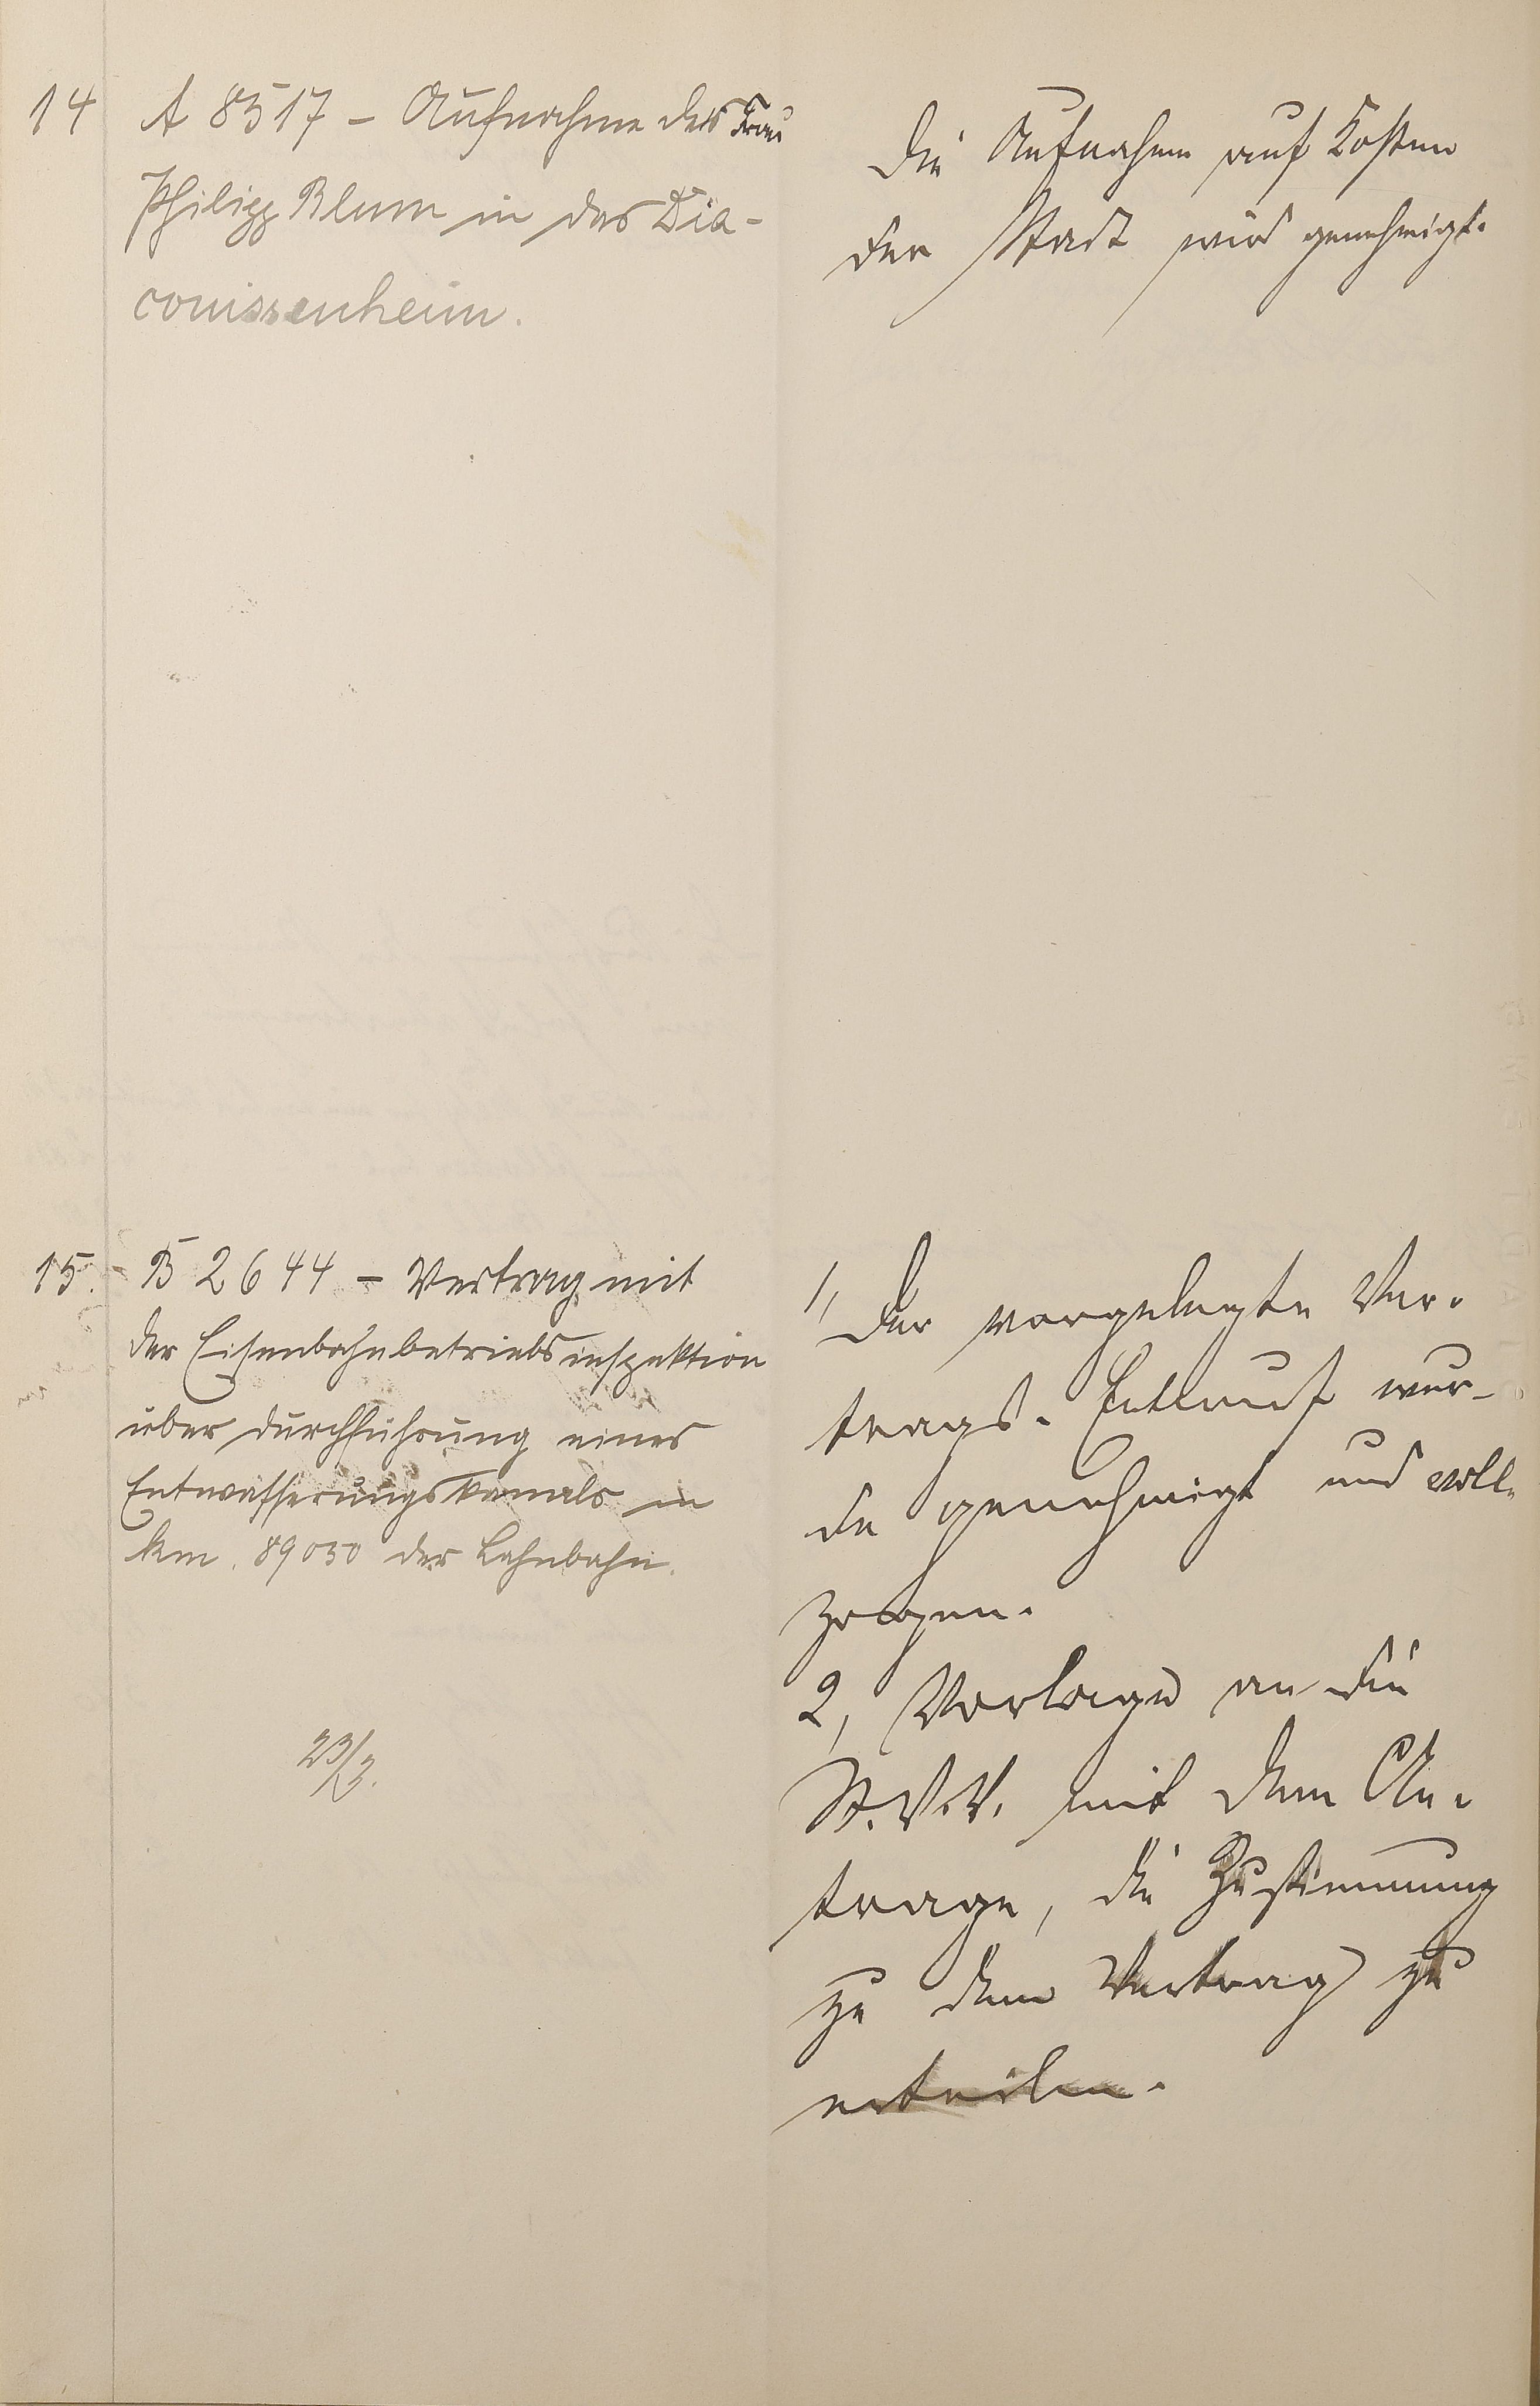 14
A 8517 - Aufnahme der Frau
Philipp Blum in das Dia-
conissenheim.
Die Aufnahme auf Kosten
der Stadt wird genehmigt.
15.
B 2644 - Vertrag mit
der Eisenbahnbetriebsinspektion
über Durchführung eines
Entwässerungskanals in
km. 89050 der Lahnbahn.
23/3.
1, Der vorgelegte Ver-
trags-Entwurf wur-
de genehmigt und voll-
zogen.
2, Vorlage an die
St.V.V. mit dem An-
trage, die Zustimmung
zu dem Vertrag zu
erteilen.